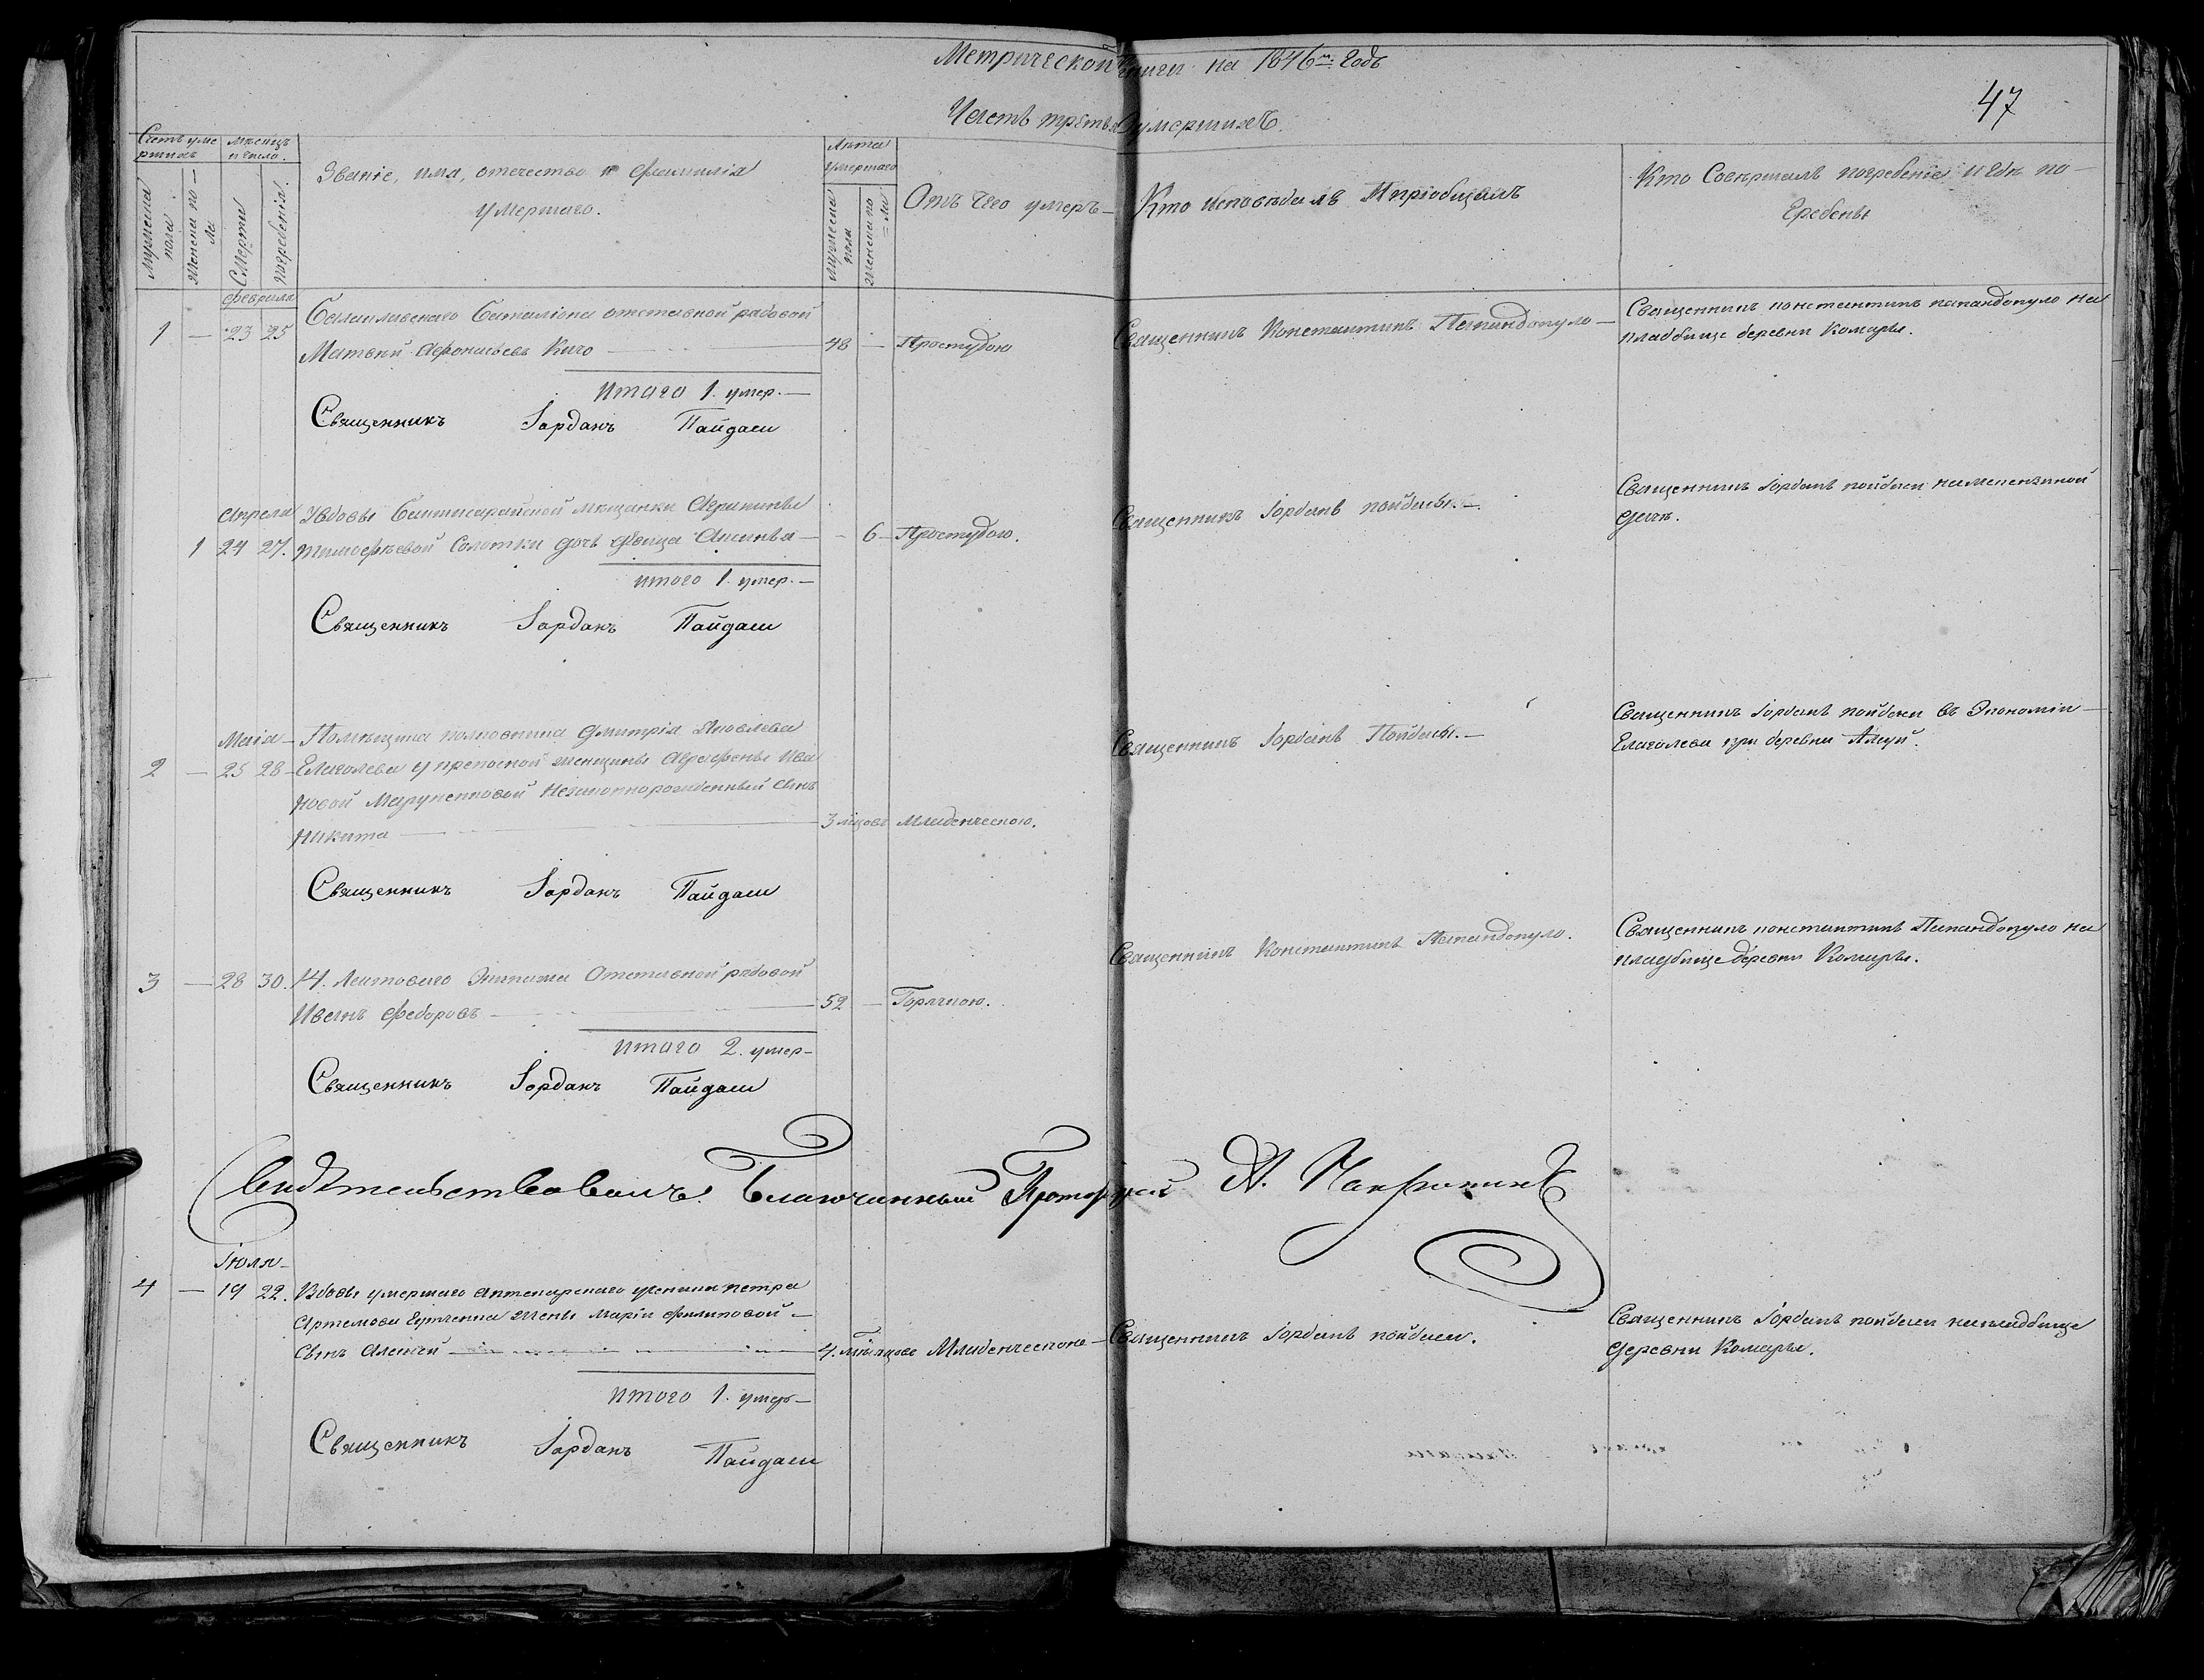 Метрической книги на 1846й Годъ
47
Часть третья умершихъ.
Счетъ умершихъ
Мужеска пола
Женска пола
мѣсяцъ и число.
Смерти
погребенія.
Званіе, имя, отечество и фамилія
умершаго.
Лѣта умершаго
Мужеска пола
Женска пола
Отъ чего умеръ
Кто исповѣдалъ и пріобщалъ
Кто Совершалъ погребеніе и гдѣ по-
гребены
февраля
1 — 23 25
Балаклавскаго баталіона отставной рядовой
Матвей Афонасьевъ Кичо
48 — Простудою
Священникъ Константинъ Папандопуло
Священникъ константинъ папандопуло на
кладбище деревни Комары.
итого 1. умер.—
Священникъ Іорданъ Пайдаси
Апреля
1 24 27.
У вдовы Бахчисарайской мещанки
тимофѣевой дочь девица
— 6 Простудою.
Священникъ Іорданъ пайдаси.—
Священникъ Іорданъ пайдаси на
дачи.
итого 1. умер.—
Священникъ Іорданъ Пайдаси
Маія
2 — 25 28
Помѣщика полковника Дмитрія Яковлева
у крепосной женщины Аграфены Ива
новой незаконнорожденный сынъ
Никита
3 мѣсяцовъ Младенческою.
Священникъ Іорданъ Пайдаси.—
Священникъ Іорданъ пайдаси въ Экономіи
при деревни Алсуй.
Священникъ Іорданъ Пайдаси
3 — 28 30.
14. Ластоваго Экипажа Отставной рядовой
Иванъ Федоровъ
52 — Горячкою.
Священникъ Константинъ Папандопуло.
Священникъ константинъ Папандопуло на
кладбище деревни Комары.
итого 2. умер—
Священникъ Іорданъ Пайдаси
Свидѣтельствовалъ Благочинный Протоіерей
Іюля
4 — 19 22.
Вдовы умершаго Аптекарскаго ученика петра
Артемова жены Маріи Филиповой
сынъ Алексей
4. мѣсяцове Младенческою
Священникъ Іорданъ пайдаси.
Священникъ Іорданъ пайдаси на кладбище
деревни Комары.
итого 1. умер—
Священникъ Іорданъ Пайдаси